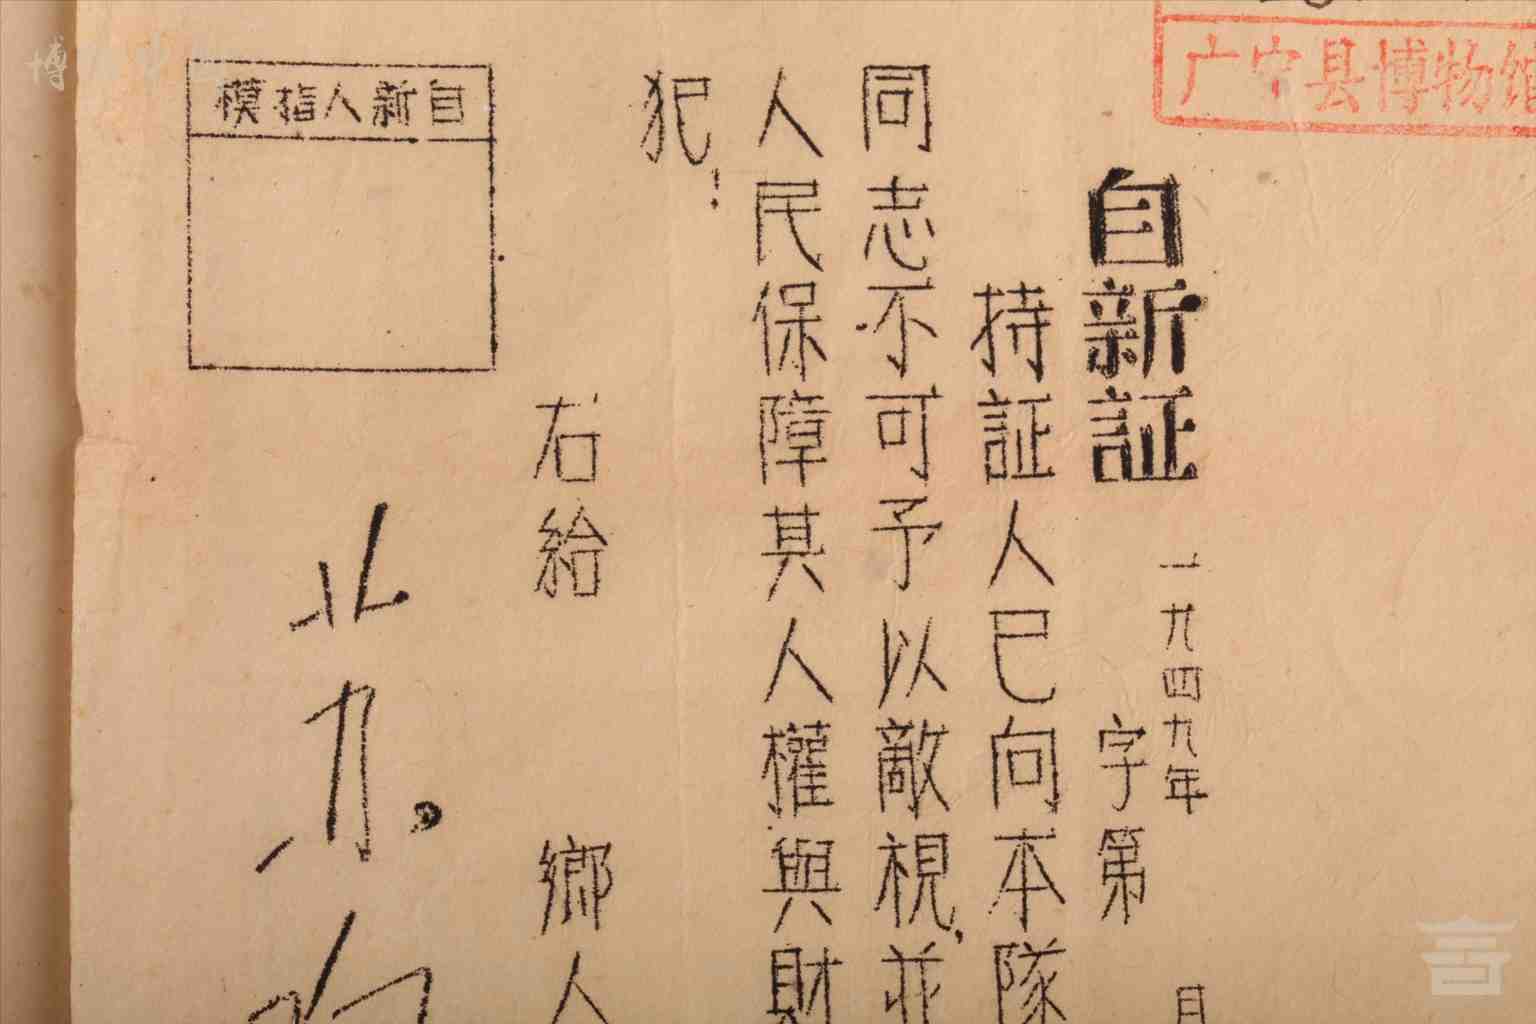 广宁县博物馆
自新証
一九四九年 月
字第
持証人已向本隊
同志不可予以敵視，並
人民保障其人權與財
犯：
右給 鄉人
自新人指模